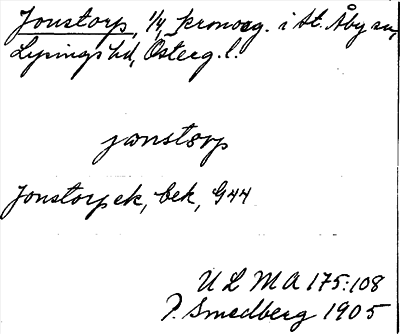 Jonstorp, 1/4, kronoeg. i St. Åby sn,
Lysings hd, Österg. l.
jonstorp
Jonstorp ek, bek, G44
ULMA 175:108
P. Smedberg 1905